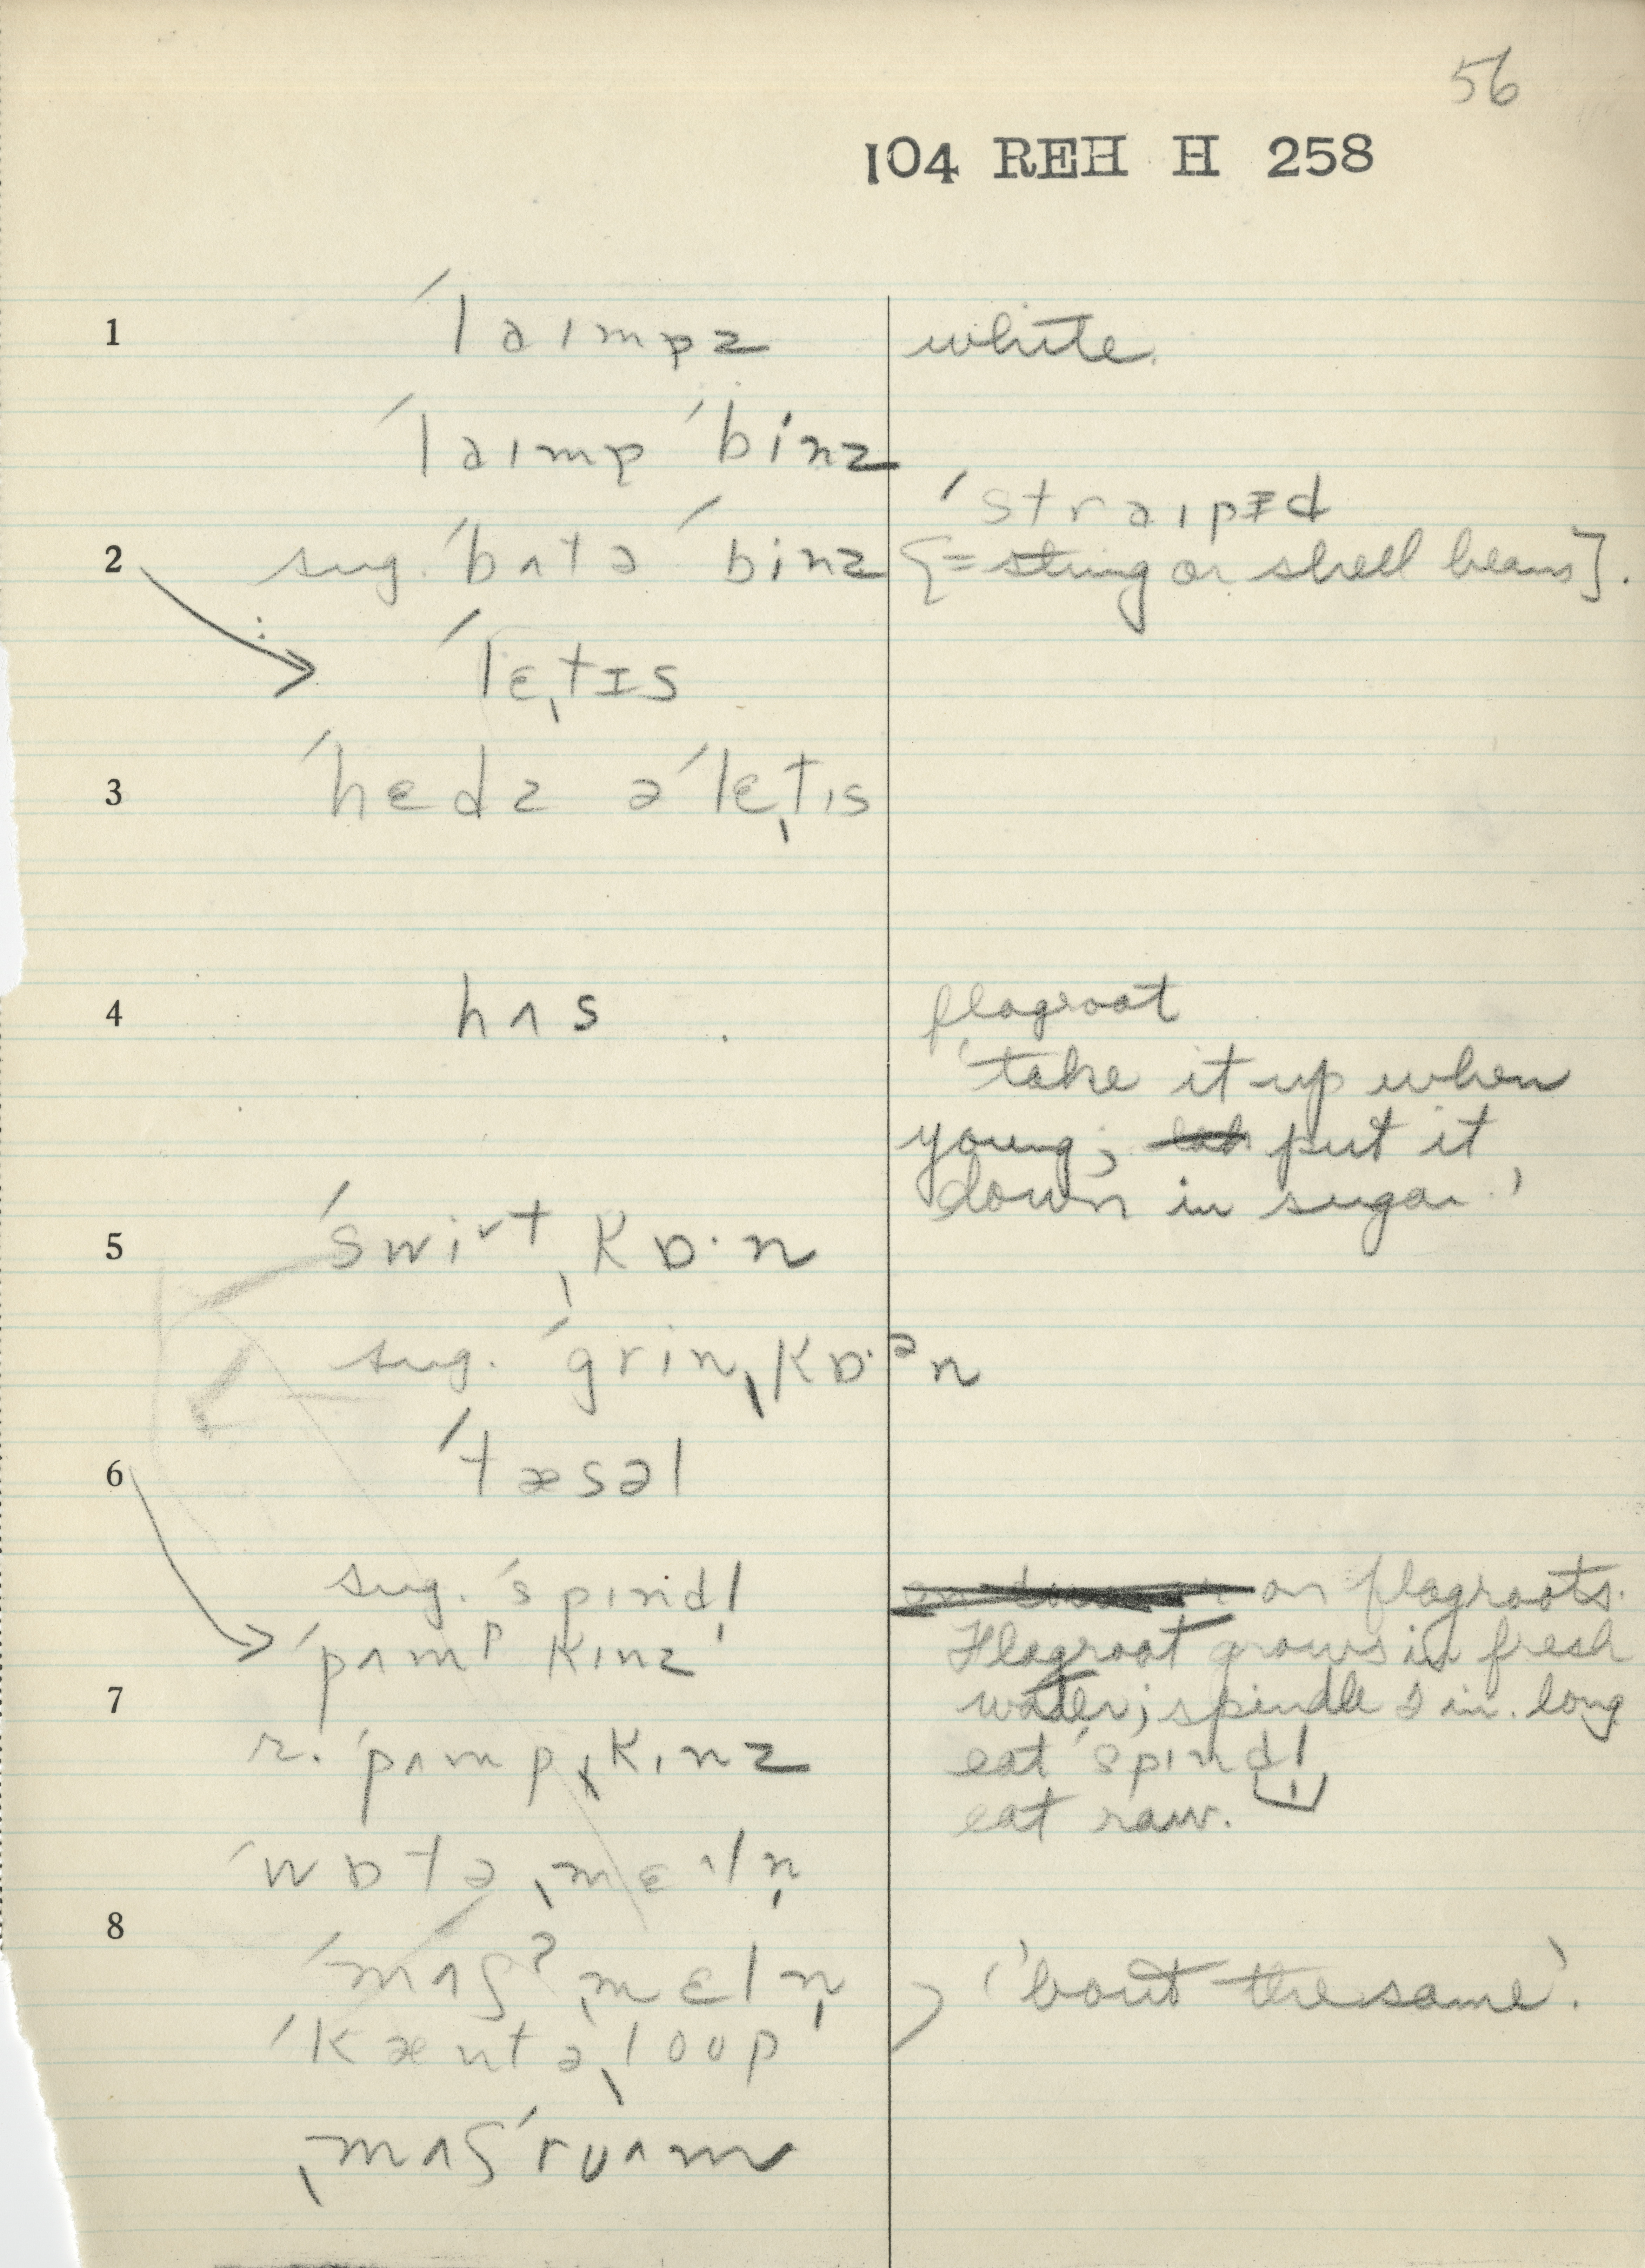 56
104 REH H 258
1 ˈlaɪmpz white.
ˈlaɪmp ˈbinz
ˈstraɪpɪd
2 sug. ˈbʌtə ˈbinz [= string or shell beans].
ˈlɛˌtɪs
3 ˈhɛdz ə ˈlɛˌtɪs
4 hʌs flagroot
'take it up when
young; put it
down in sugar.'
5 ˈswiᵛt ˌkɒ·n
sug. ˈgrin ˌkɒ·ᵊn
ˈtæsəl
6
sug. ˈspɪndl̩ or flagroots.
ˈpʌmᵖ kɪnz Flagroot grows in fresh
7 water; spindle 2 in. long
r. ˈpʌmpˌkɪnz eat ˈspɪndl̩
eat raw.
ˈwɒtəˌmɛᶺln̩
8
ˈmʌʃˀˌmɛln̩ 'bout the same'.
ˈkæntəˌloʊp
ˌmʌʃˈrʊʌm